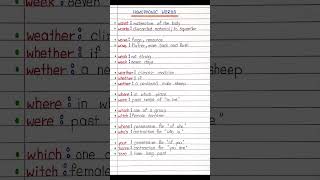 HOMOPHONIC WORDS
waist : midsection of the body
waste : discarded material; to squander
waive : forgo, renounce
wave : flutter, move back and forth
weak : not strong
week : seven days
weather : climatic
whether : if
wether : a castrated male sheep
where : in which place
were : past tense of "to be"
which : one of a group
witch : female sorcerer
whose : possessive for "of who"
who's : contraction for "who is"
your : possessive for "of you"
you're : contraction for "you are"
yore : time long past
weather :
whether :
wether : a
sheep
where : i
were : pas
which : on
witch : fem